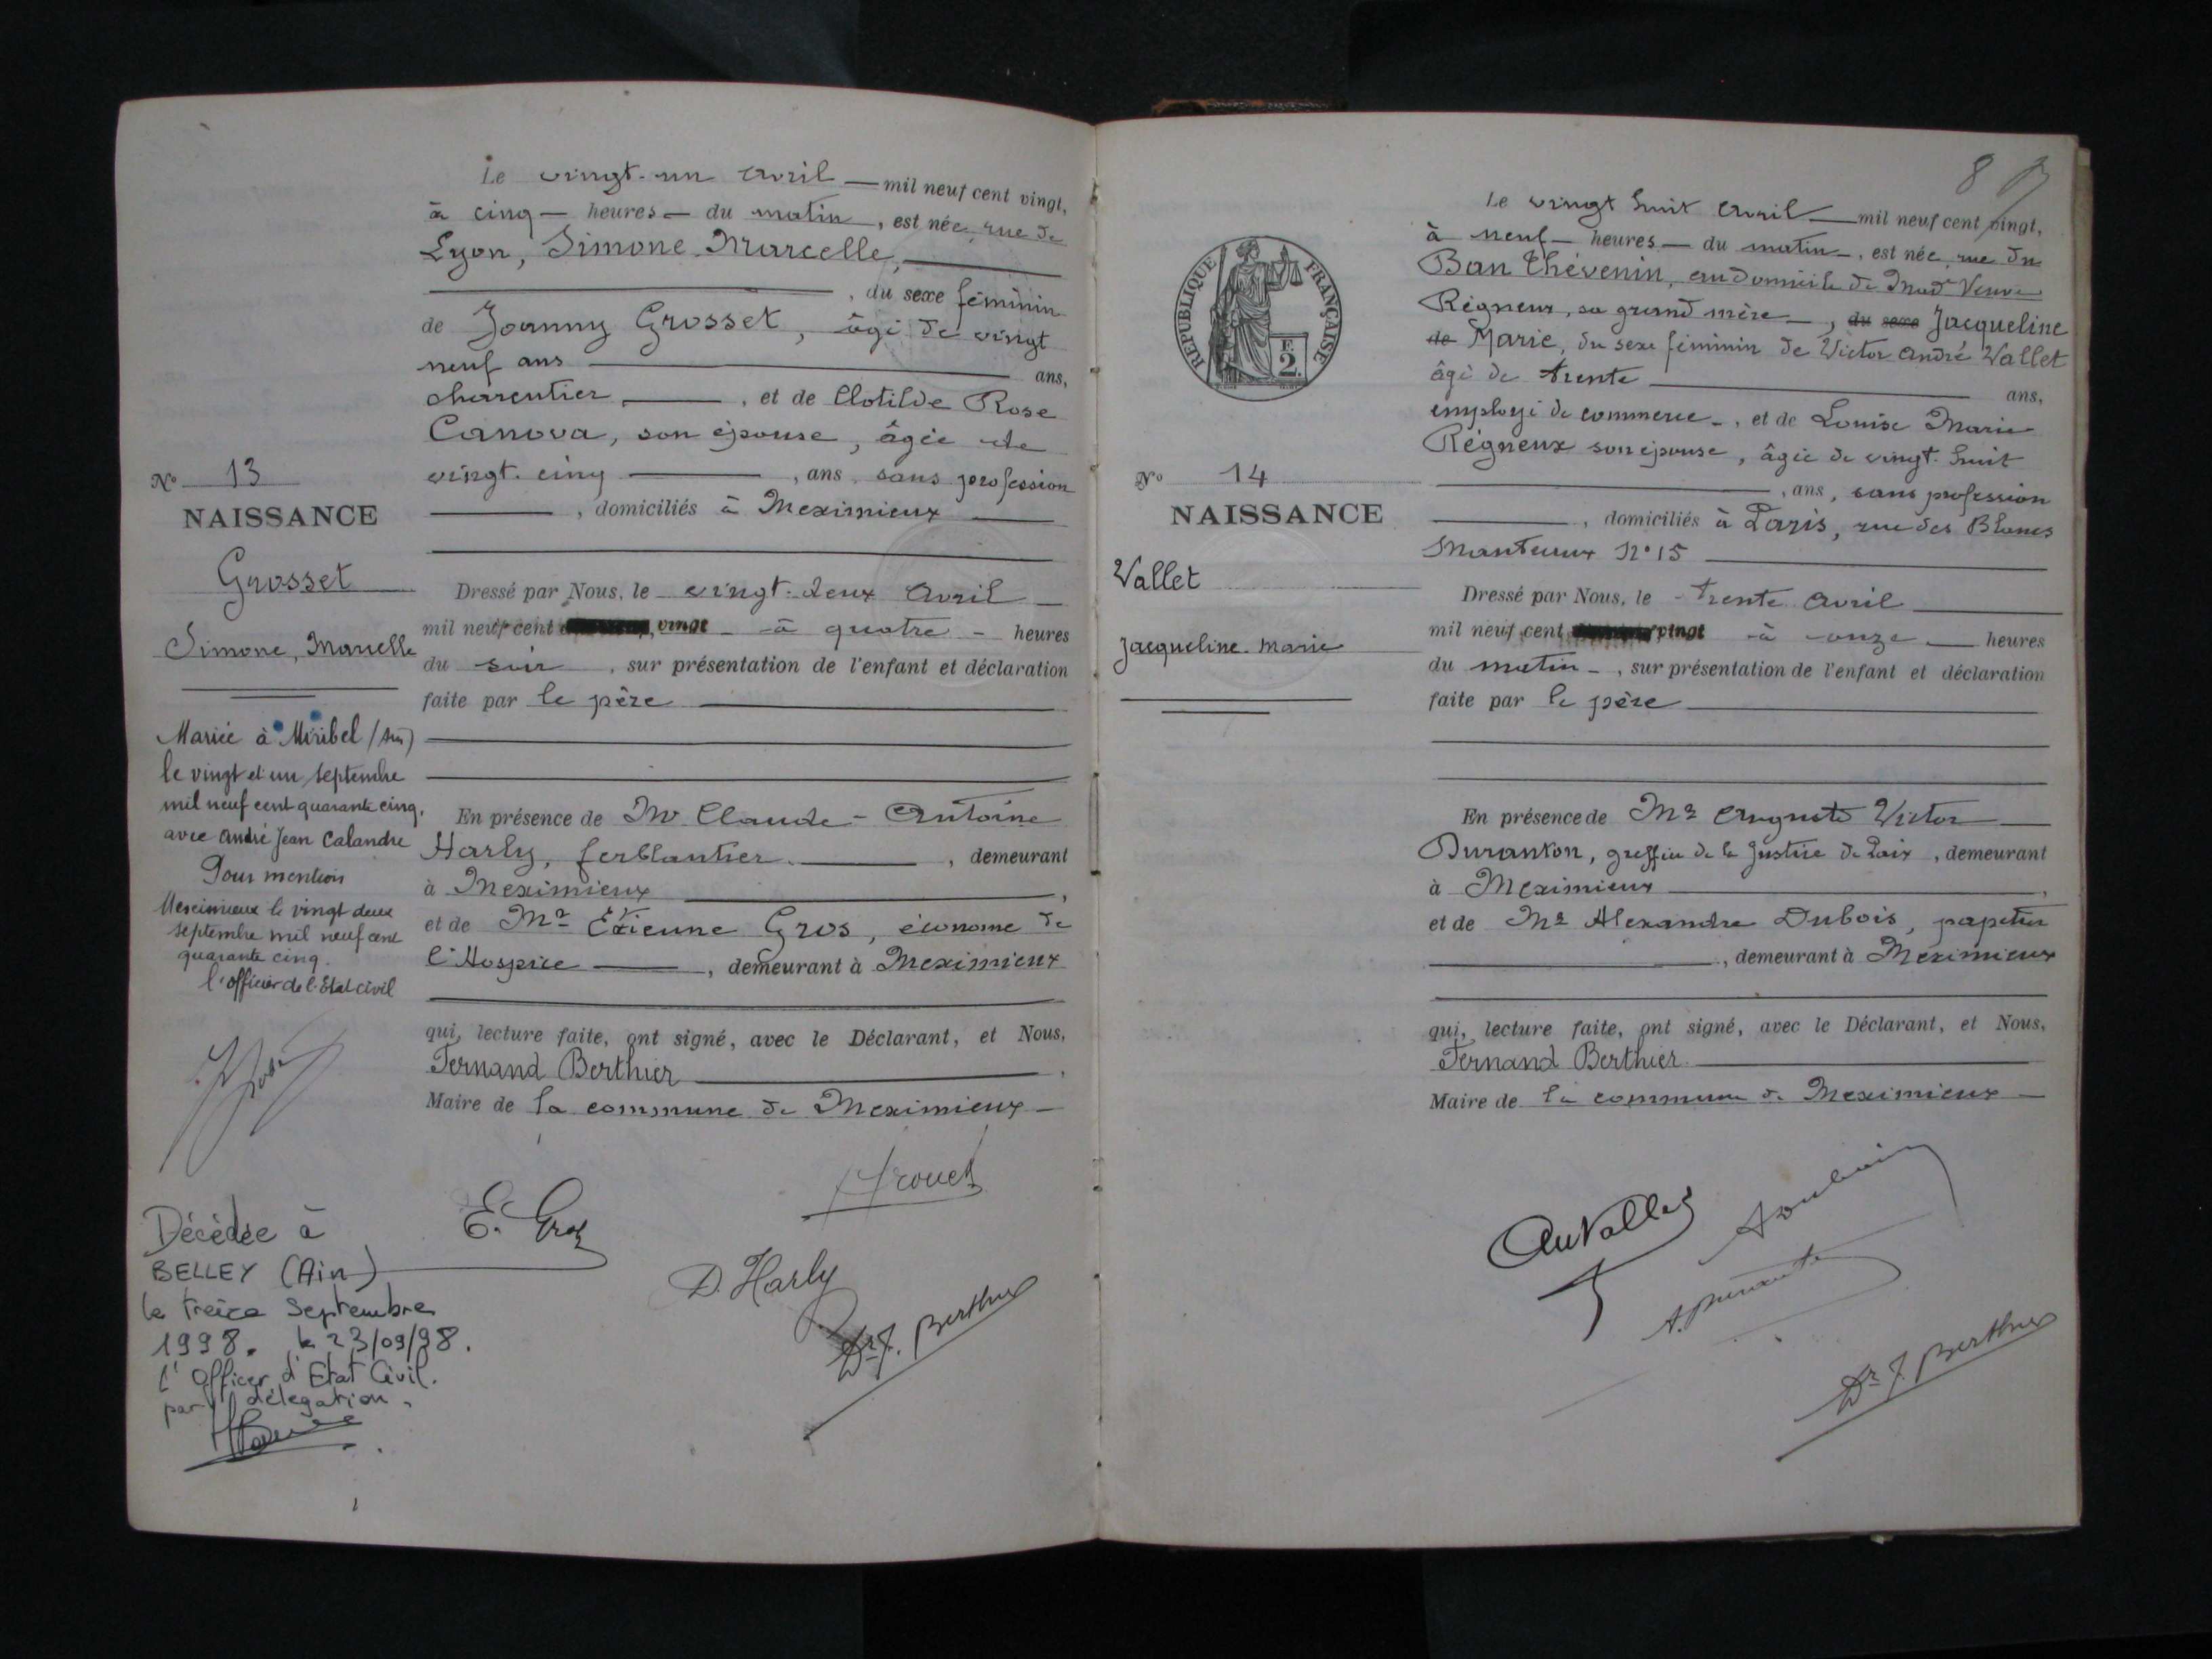 Le vingt-un avril — mil neuf cent vingt,
à cinq — heures — du matin, est née, rue de
Lyon, Simone Marcelle,
, du sexe féminin
de Joanny Grosset, âgé de vingt
neuf ans ans,
charentier, et de Clotilde Rose
Canova, son épouse, âgée de
vingt-cinq, ans, sans profession
, domiciliés à Meximieux
Nº 13
NAISSANCE
Grosset
Simone, Marcelle
Dressé par Nous, le vingt-deux avril
mil neuf cent vingt à quatre heures
du soir, sur présentation de l'enfant et déclaration
faite par le père
Mariée à Miribel (Ain)
le vingt et un septembre
mil neuf cent quarante cinq.
avec André Jean Calandre
Pour mention
Meximieux le vingt deux
septembre mil neuf cent
quarante cinq.
l'officier de l'Etat civil
En présence de Mr Claude-Antoine
Harly, ferblantier, demeurant
à Meximieux,
et de Mr Etienne Gros, économe de
l'Hospice, demeurant à Meximieux
qui, lecture faite, ont signé, avec le Déclarant, et Nous,
Fernand Berthier,
Maire de la commune de Meximieux
E. Gros
D. Harly
Dr F. Berthier
Décédée à
BELLEY (Ain)
le treize Septembre
1998. le 23/09/98.
l'Officier d'Etat Civil.
par délégation.
8
RÉPUBLIQUE FRANÇAISE
F.
2.
Le vingt huit avril — mil neuf cent vingt,
à neuf — heures — du matin, est née, rue du
Ban Thévenin, au domicile de Mad Veuve
Régneux, sa grand mère, du sexe Jacqueline
de Marie, du sexe féminin de Victor André Vallet
âgé de trente ans,
employé de commerce, et de Louise Marie
Régneux son épouse, âgée de vingt-huit
, ans, sans profession
, domiciliés à Paris, rue des Blancs
Manteaux Nº 15
Nº 14
NAISSANCE
Vallet
Jacqueline Marie
Dressé par Nous, le trente avril
mil neuf cent vingt à onze heures
du matin, sur présentation de l'enfant et déclaration
faite par le père
En présence de Mr Auguste Victor
Duranton, greffier de la Justice de Paix, demeurant
à Meximieux,
et de Mr Alexandre Dubois, papetier
, demeurant à Meximieux
qui, lecture faite, ont signé, avec le Déclarant, et Nous,
Fernand Berthier
Maire de la commune de Meximieux
Dr F. Berthier